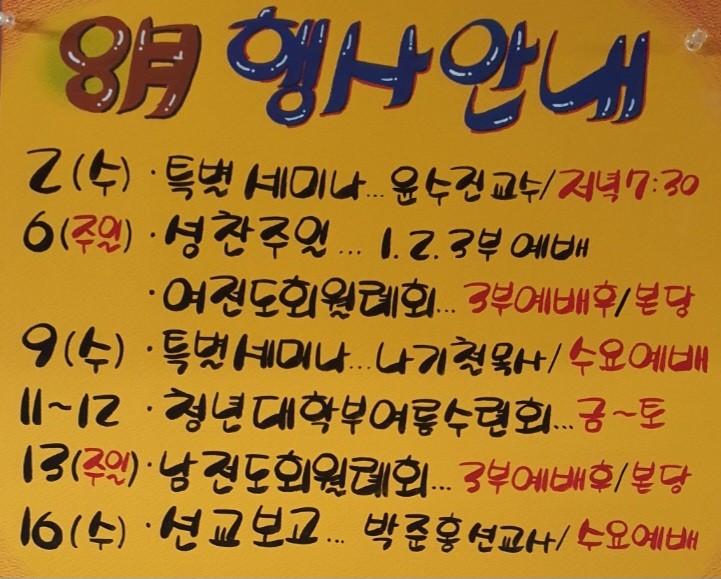 8月 행사안내
2(수)·특별세미나... 윤수진교수/저녁7:30
6(주일)·성찬주일... 1.2.3부예배
·여전도회월례회... 3부예배후/본당
9(수)·특별세미나...나기철목사/수요예배
11~12·청년대학부여름수련회...금~토
13(주일)·남전도회월례회...3부예배후/본당
16(수)·선교보고... 박준홍선교사/수요예배